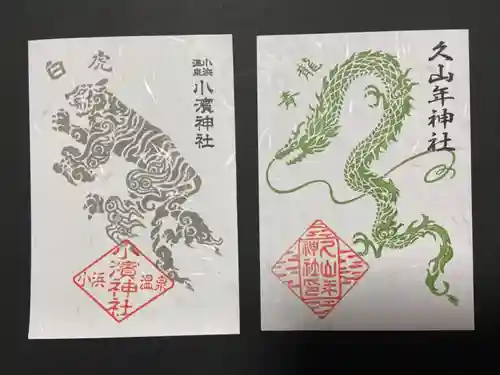 白虎
小浜
温泉
小濱神社
小浜
小濱神社
温泉
青龍
久山年神社
久山年
神社